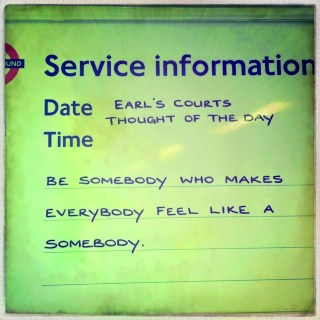 UND
Service information
Date EARL'S COURTS
THOUGHT OF THE DAY
Time
BE SOMEBODY WHO MAKES
EVERYBODY FEEL LIKE A
SOMEBODY.